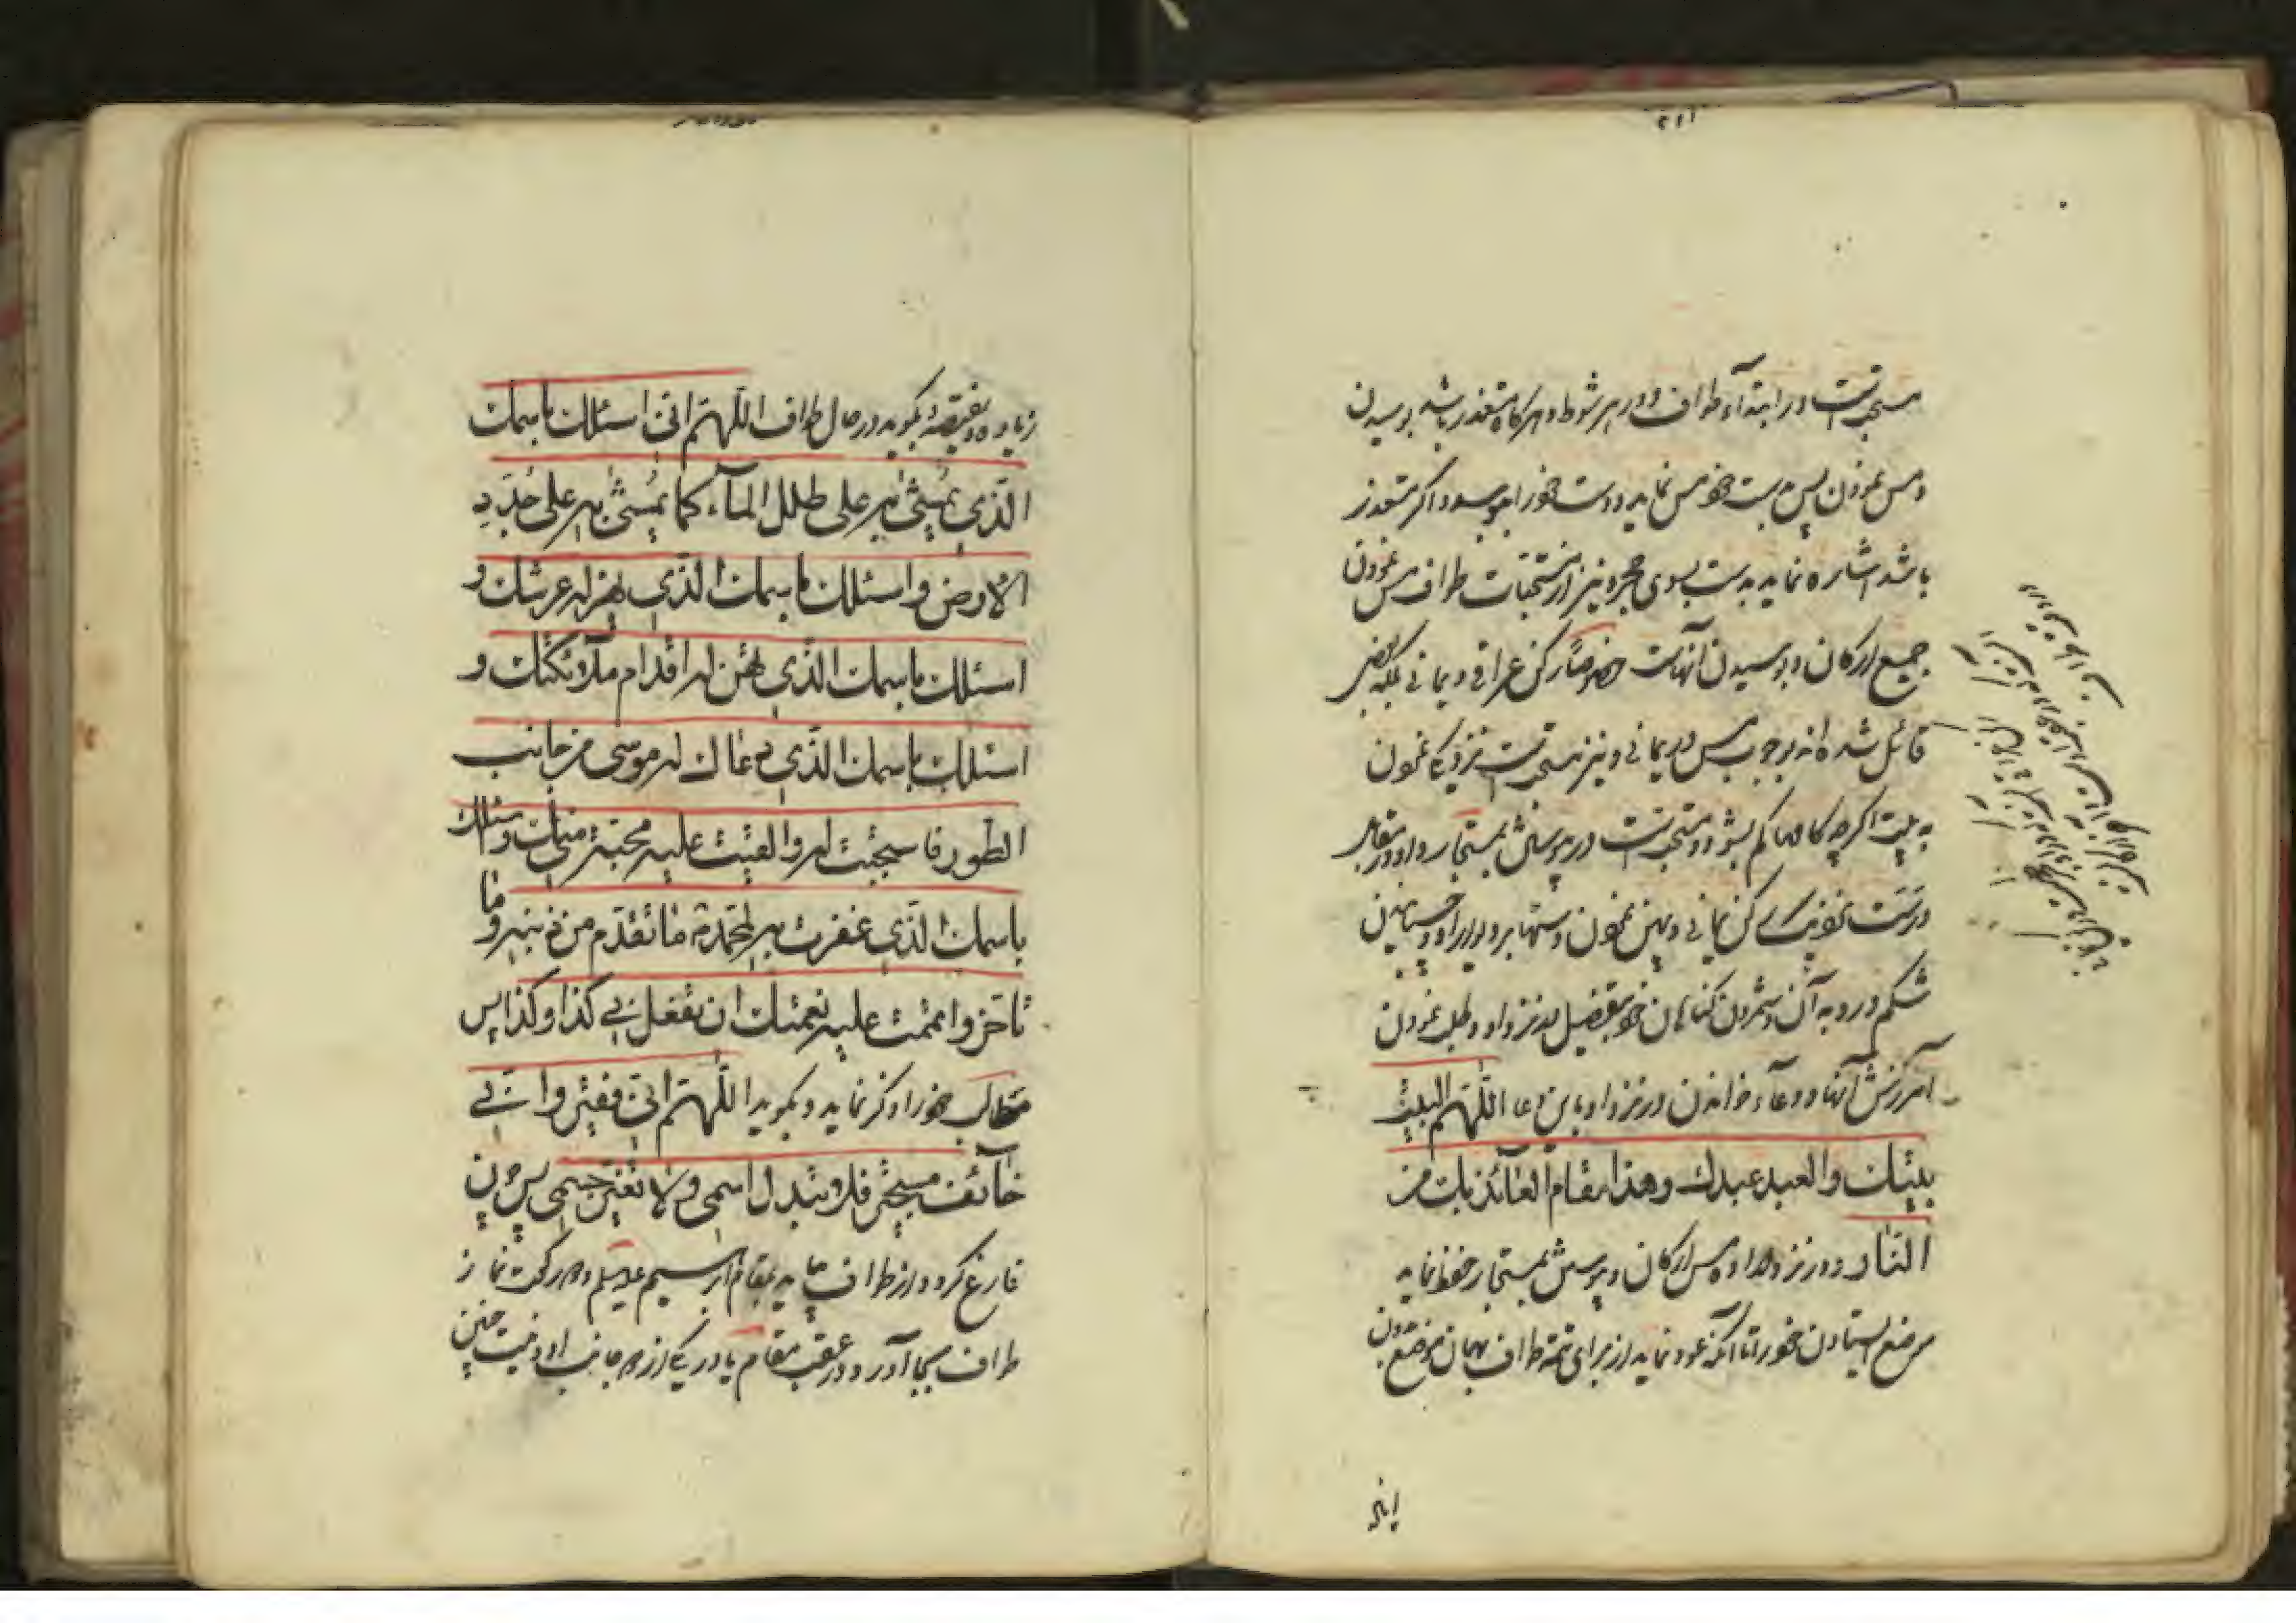 مستحبست در ابتدآء طواف و در هر شوط و هرگاه متعذر باشد بوسیدن
و مس نمودن پس بدست خود مس نماید و دست خود را ببوسد و اگر متعذر
باشد اشاره نماید بدست بسوی حجر و نیز از مستحبات طواف مس نمودن
جمیع ارکان و بوسیدن آنهاست خصوصاً رکن عراقی و یمانی بلکه بعضی
قائل شده اند بوجوب مس در یمانی و نیز مستحبست نزدیکی نمودن
به بیت اگرچه کامها کم بشود و مستحبست در پوشش بمستجار و او در مقابل
درست نزدیک رکن یمانی و پهن نمودن دستها بر دیوار او و چسبانیدن
شکم و رو به آن و شمردن گناهان خود بتفصیل در نزد او و طلب نمودن
آمرزش آنها و دعآء خواندن در نزد او باین دعا اللّهمّ البیت
بیتك والعبد عبدك وهذا مقام العآئذ بك من
النّار و در نزد مس ارکان و پوشش بمستجار حفظ نماید
موضع ایستادن خود را تا آنکه عود نماید از برای تتمه طواف بهمان موضع بدون
زیاده و نقیصهٔ بگوید در حال طواف اللّهمّ انّی اسئلك باسمك
الّذی یمشی به علی طلل المآء کما یمشی به علی جدد
الارض واسئلك باسمك الّذی یهتزّ له عرشك و
اسئلك باسمك الّذی تهتزّ له اقدام ملآئکتك و
اسئلك باسمك الّذی دعاك له موسی من جانب
الطّور فاستجبت له والقیت علیه محبّة منك واسئلك
باسمك الّذی غفرت به لمحمّد ما تقدّم من ذنبه وما
تاخّر واتممت علیه نعمتك ان تفعل بی کذا وکذا پس
مطالب خود را ذکر نماید و بگوید اللّهمّ انّی فقیر وانّی
خآئف مستجیر فلا تبدّل اسمی ولا تغیّر جسمی پس چون
فارغ گردد از طواف بیاید بمقام ابرهیم علیه السلم و دو رکعت نماز
طواف بجا آورد در عقب مقام یا در یکی از دو جانب او و نیت چنین